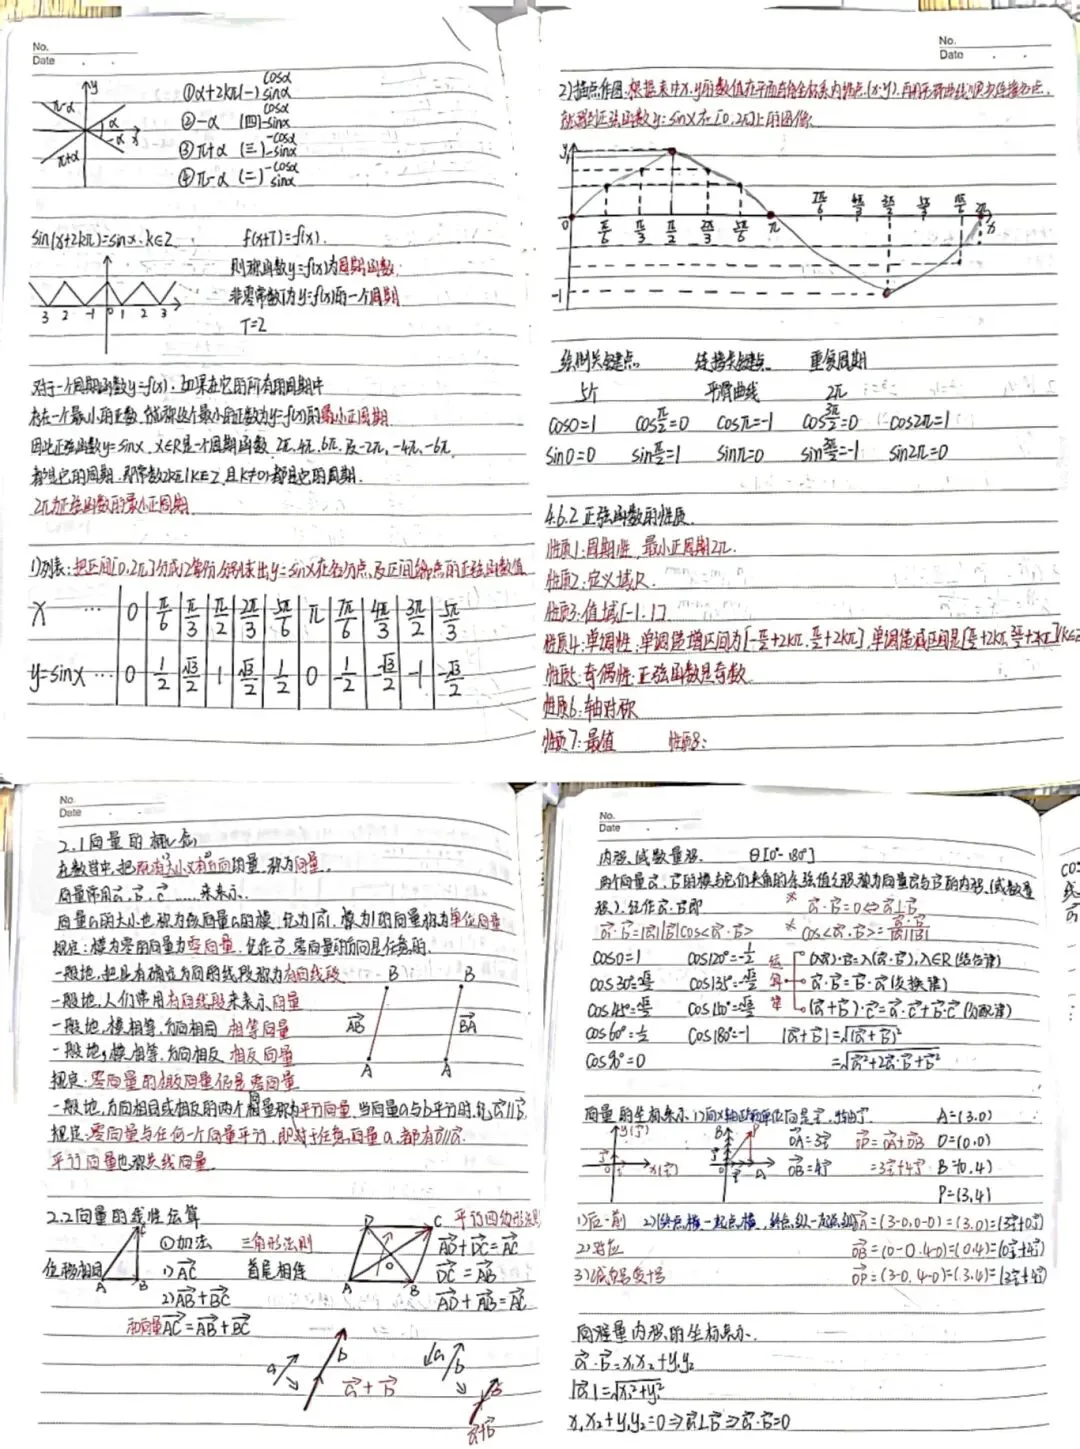 No.
Date
y
π-α
α
-α
x
π+α
①α+2kπ(一) cosα sinα
②-α (四) cosα -sinα
③π+α (三) -cosα -sinα
④π-α (二) -cosα sinα
sin(x+2kπ)=sinx.k∈Z f(x+T)=f(x).
则称函数y=f(x)为周期函数
非零常数T为y=f(x)的一个周期
T=2
3 2 -1 0 1 2 3
对于一个周期函数y=f(x),如果在它的所有的周期中
存在一个最小的正数,就称这个最小的正数为y=f(x)的最小正周期
因此正弦函数y=sinx,x∈R是一个周期函数,2π,4π,6π,及-2π,-4π,-6π
都是它的周期,即常数2kπ(k∈Z,且k≠0)都是它的周期.
2π为正弦函数的最小正周期
1)列表:把区间[0,2π]分成12等份,分别求出y=sinx在各分点及区间端点的正弦函数值
x ... 0 π/6 π/3 π/2 2π/3 5π/6 π 7π/6 4π/3 3π/2 5π/3
y=sinx ... 0 1/2 √3/2 1 √3/2 1/2 0 -1/2 -√3/2 -1 -√3/2
No.
Date
2)描点作图:根据表中x,y的数值在平面直角坐标系内描点(x,y),再用平滑曲线
就得到正弦函数y=sinx在[0,2π]上的图像
y
0 π/6 π/3 π/2 2π/3 5π/6 π 7π/6 4π/3 3π/2 5π/3 11π/6 2π x
-1
绘制关键点 连接关键点 重复周期
5个 平滑曲线 2π
cos0=1 cosπ/2=0 cosπ=-1 cos3π/2=0 cos2π=1
sin0=0 sinπ/2=1 sinπ=0 sin3π/2=-1 sin2π=0
4.6.2 正弦函数的性质
性质1:周期性,最小正周期2π.
性质2:定义域R
性质3:值域[-1.1]
性质4:单调性:单调递增区间为[-π/2+2kπ,π/2+2kπ],单调递减区间是[π/2+2kπ,3π/2+2kπ](k∈Z
性质5:奇偶性:正弦函数是奇数
性质6:轴对称
性质7:最值 性质8:
No.
Date
2.1向量的概念
在数学中,把既有大小又有方向的量,称为向量.
向量常用a⃗,b⃗,c⃗......来表示.
向量a的大小也称为该向量a的模,记为|a⃗|,模为1的向量称为单位向量
规定:模为零的向量为零向量,记作0⃗,零向量的方向是任意的.
一般地,把具有确定方向的线段称为有向线段
一般地,人们常用有向线段来表示向量
一般地,模相等,方向相同 相等向量
一般地,模相等,方向相反 相反向量
B B
AB⃗ BA⃗
A A
规定:零向量的相反向量仍是零向量
一般地,方向相同或相反的两个向量称为平行向量,当向量a与b平行时,记a⃗∥b⃗
规定:零向量与任何一个向量平行,即对于任意向量a,都有0⃗∥a⃗.
平行向量也称共线向量
2.2向量的线性运算
位移相同
C
A B
①加法 三角形法则
1)AC⃗ 首尾相连
2)AB⃗+BC⃗
AC⃗=AB⃗+BC⃗
D C 平行四边形法则
O
A B
AD⃗+DC⃗=AC⃗
DC⃗=AB⃗
AD⃗+AB⃗=AC⃗
a b a⃗+b⃗
a b
a⃗+b⃗
No.
Date
内积(或数量积) θ[0°-180°]
两个向量a⃗,b⃗的模与它们夹角的余弦值之积称为向量a⃗与b⃗的内积(或数量
积),记作a⃗·b⃗即 * a⃗·b⃗=0⇔a⃗⊥b⃗
a⃗·b⃗=|a⃗||b⃗|cos<a⃗·b⃗> * cos<a⃗·b⃗>=a⃗·b⃗/|a⃗||b⃗|
cos0=1 cos120°=-1/2 运 (λa⃗)·b⃗=λ(a⃗·b⃗),λ∈R(结合律)
cos30°=√3/2 cos135°=-√2/2 算 a⃗·b⃗=b⃗·a⃗(交换律)
cos45°=√2/2 律 (a⃗+b⃗)·c⃗=a⃗·c⃗+b⃗·c⃗(分配律)
cos60°=1/2 cos180°=-1 |a⃗+b⃗|=√(a⃗+b⃗)²
cos90°=0 =√a⃗²+2a⃗·b⃗+b⃗²
向量的坐标表示 A=(3.0)
OA⃗=3i⃗ OP⃗=OA⃗+OB⃗ O=(0.0)
OB⃗=4j⃗ =3i⃗+4j⃗ B=(0,4)
P=(3,4)
1)后-前 2)(终点横-起点横,终点纵-起点纵) OA⃗=(3-0,0-0)=(3.0)=(3i⃗+0j⃗)
2)对应 OB⃗=(0-0.4-0)=(0.4)=(0i⃗+4j⃗)
3)减负号变号 OP⃗=(3-0,4-0)=(3.4)=(3i⃗+4j⃗)
向量内积的坐标表示.
a⃗·b⃗=x₁x₂+y₁y₂
|a⃗|=√x₁²+y₁²
x₁x₂+y₁y₂=0⇒a⃗⊥b⃗⇒a⃗·b⃗=0